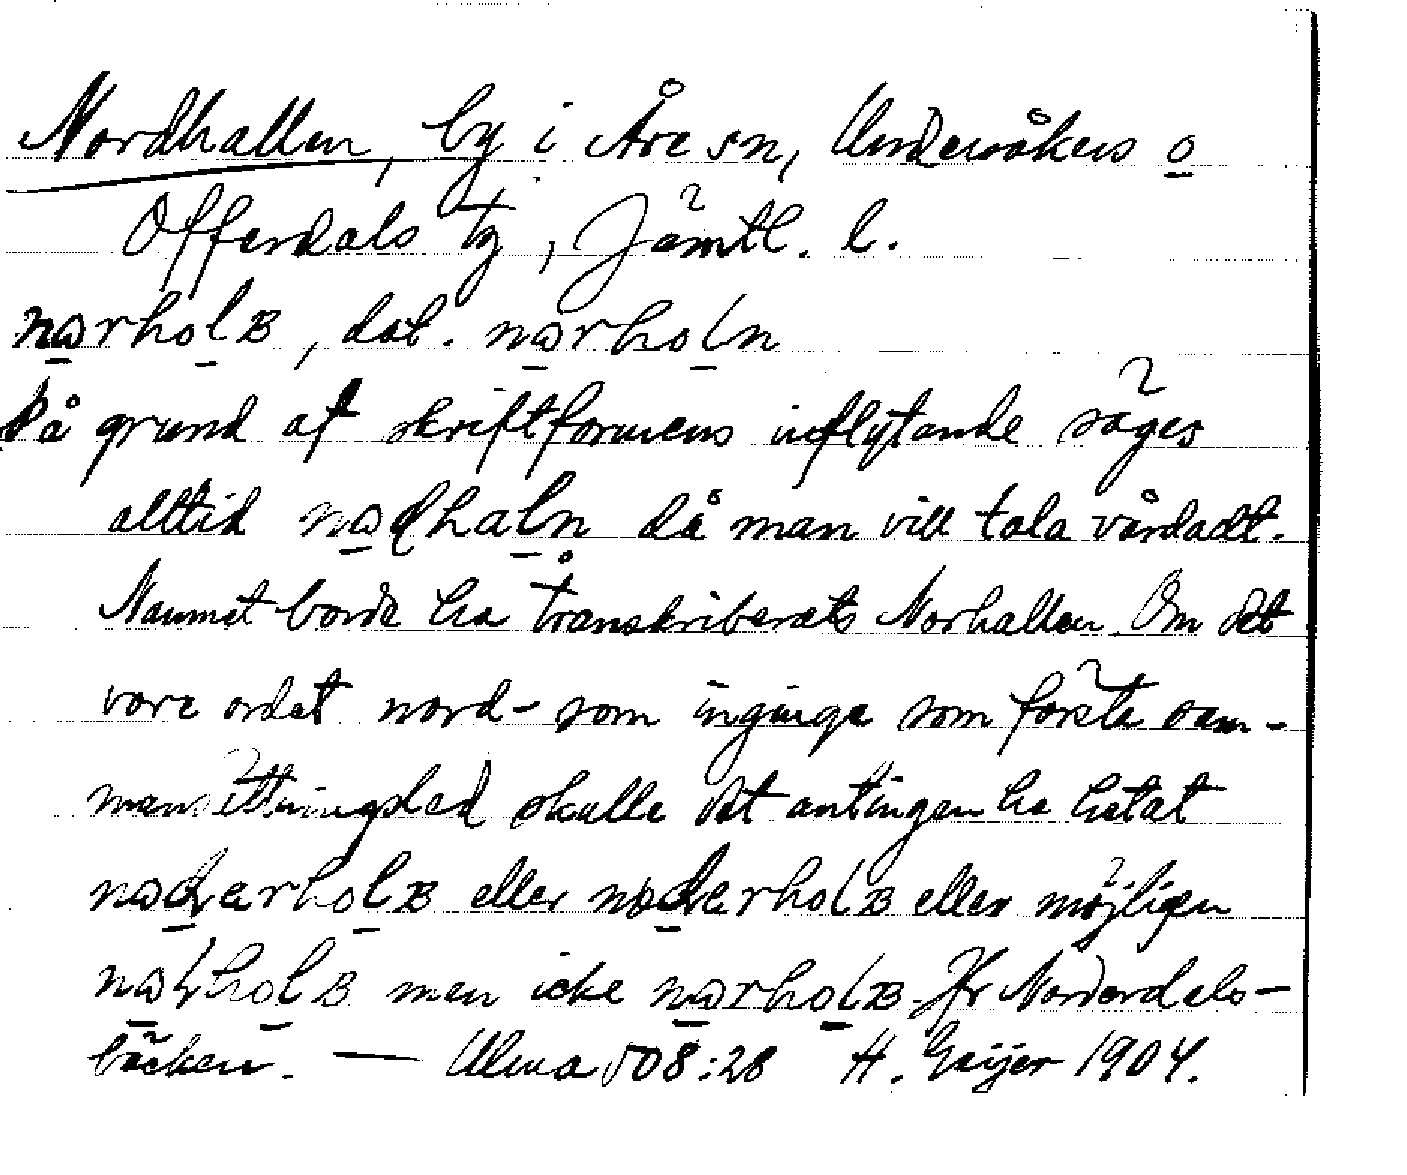 Nordhallen, by i Åre sn, Undersåkers o
Offerdals tg, Jämtl. l.
nɷrholʙ, dat. nɷrholn
På grund af skriftformens inflytande säges
alltid nɷɖhaln då man vill tala vårdadt.
Namnet borde ha transkriberats Norhallen. Om det
vore ordet nord- som inginge som första sam-
mansättningsled skulle det antingen ha hetat
nɷɖerholʙ eller nɷɖerholʙ eller möjligen
holʙ men icke nɷrholʙ. Jfr Norderdals-
bäcken. — Ulma 508:28 H. Geijer 1904.